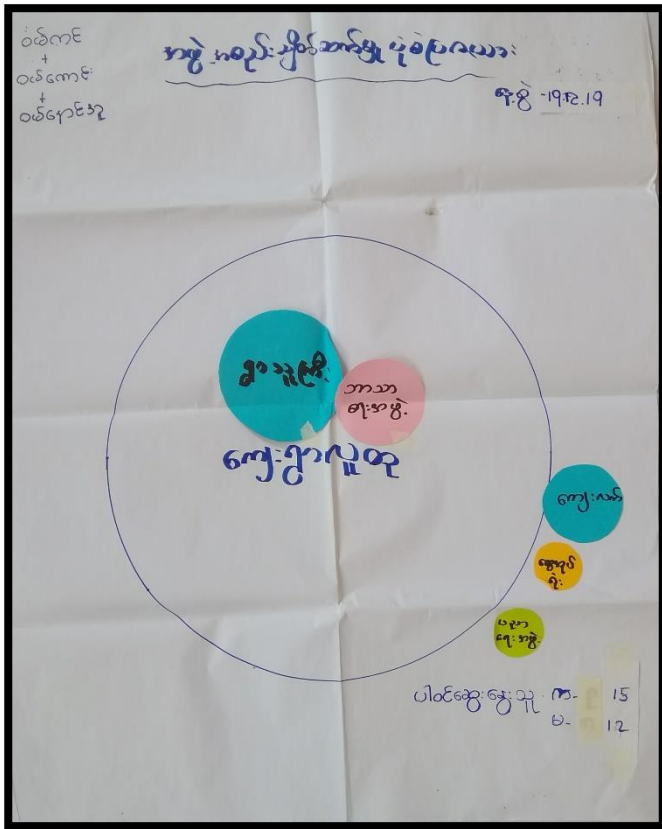 ဝယ်ကင်
+
ဝယ်ကောင်း
+
ဝယ်နောင်အူ
အဖွဲ့အစည်းချိတ်ဆက်မှု ပုံစံပြဇယား
နေ့စွဲ -19.12.19
ရွာသူကြီး
ဘာသာ
ရေးအဖွဲ့
ကျေးရွာလူထု
ကျေးလက်
ထွေအုပ်
ရုံး
ပညာ
ရေးအဖွဲ့
ပါဝင်ဆွေးနွေးသူ ကျ- 15
မ- 12